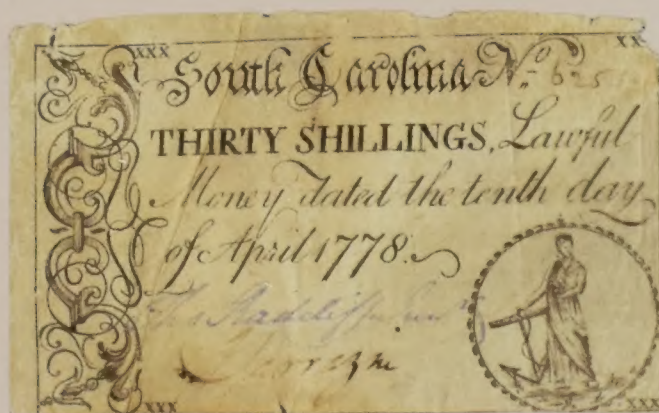 XXX XX
South Carolina No.
THIRTY SHILLINGS, Lawful
Money dated the tenth day
of April 1778.
XXX XXX